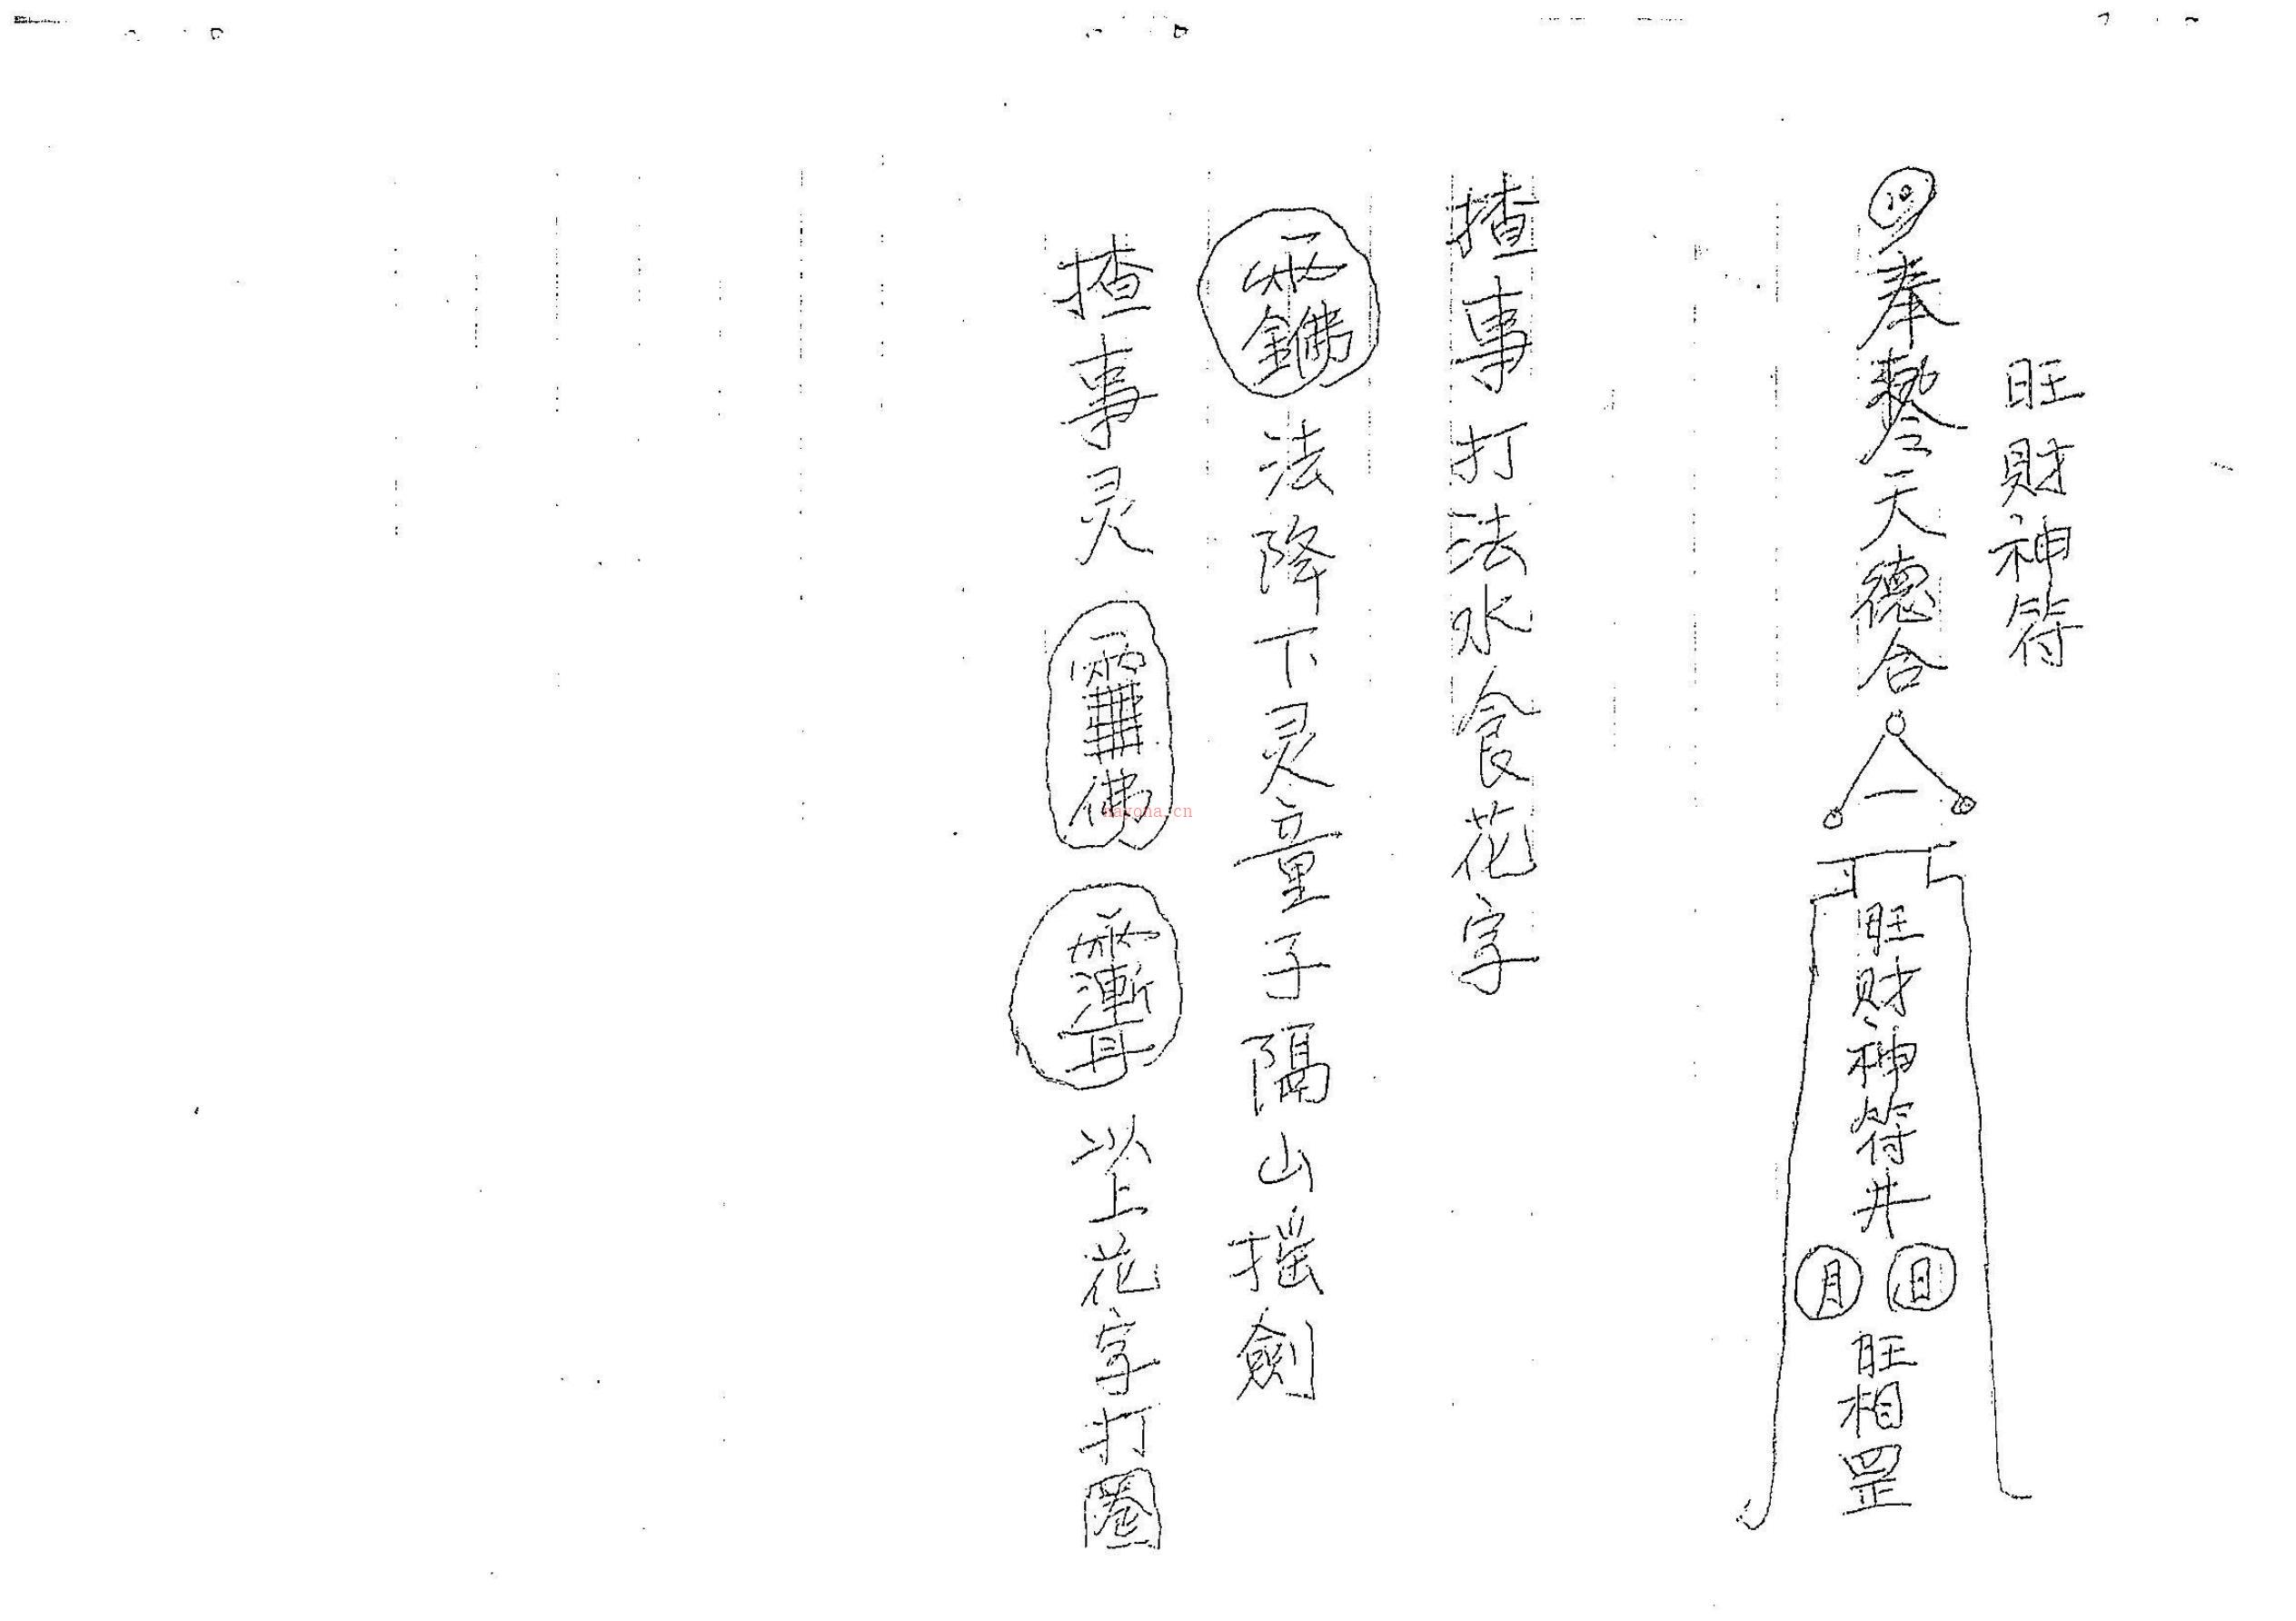 旺財神符
奉勅令天德合
一
旺財神符井
日
月
旺相罡
揸事打法水食花字
法降下灵童子隔山摇劍
揸事灵
佛
以上花字打圈
nayona.cn